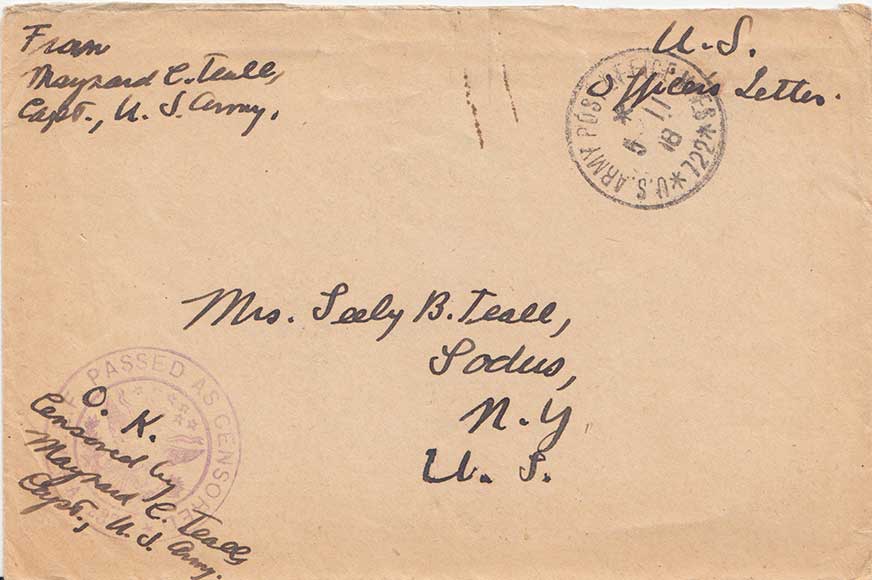 From
Maynard C. Teall,
Capt., U. S. Army.
U. S.
Officers Letter.
U.S. ARMY POST OFFICE *722*
*
5 11
18
Mrs. Seely B. Teall,
Sodus,
N. Y
U. S.
PASSED AS CENSORED
O. K.
Censored by
Maynard C. Teall
Capt., U. S. Army.